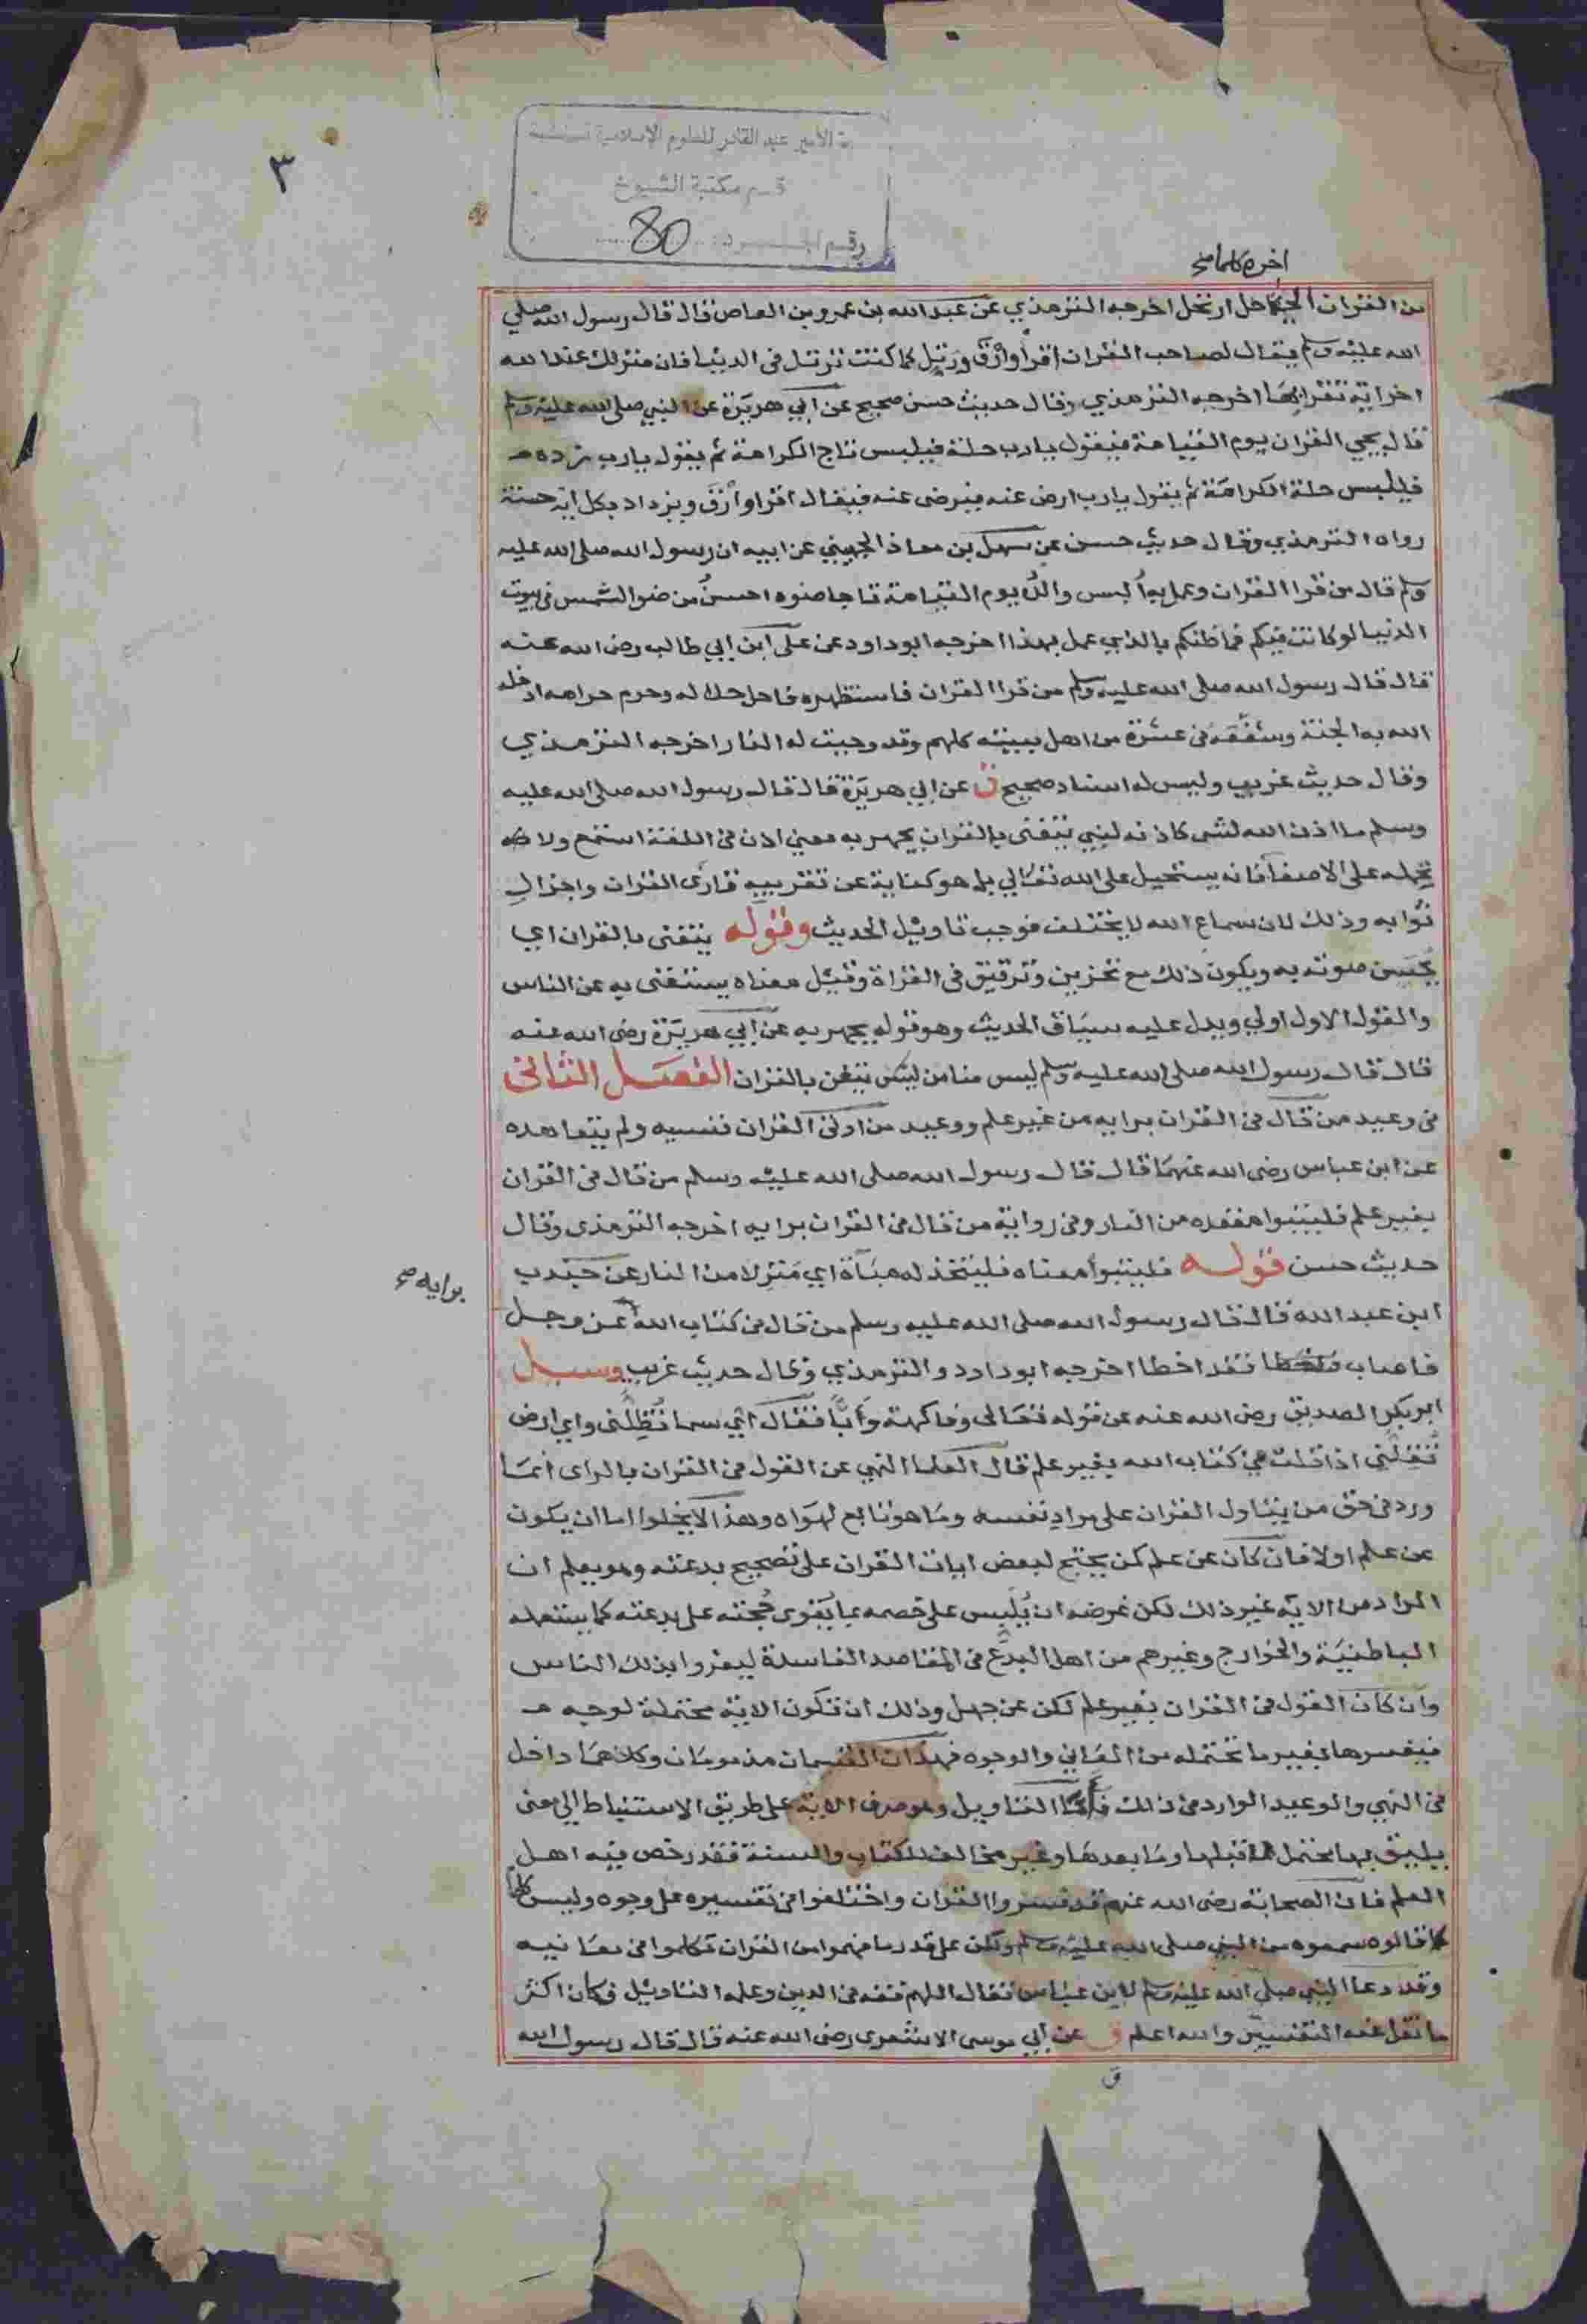 ٣
الأمير عبد القادر للعلوم الإسلامية
قسم مكتبة الشيوخ
رقم 80
اخره كلما صح
من القران الى حل ارتحل اخرجه الترمذي عن عبد الله بن عمرو بن العاص قال قال رسول الله صلى
الله عليه وسلم يقال لصاحب القران اقرأ وارق ورتل كما كنت ترتل في الدنيا فان منزلك عند الله
اخر اية تقرا بها اخرجه الترمذي وقال حديث حسن صحيح عن ابي هريرة عن النبي صلى الله عليه وسلم
قال يجي القران يوم القيامة فيقول يارب حلة فيلبس تاج الكرامة ثم يقول يارب زده
فيلبس حلة الكرامة ثم يقول يارب ارض عنه فيرضى عنه فيقال اقرا وارق ويزداد بكل اية حسنة
رواه الترمذي وقال حديث حسن عن سهل بن معاذ الجهيني عن ابيه ان رسول الله صلى الله عليه
وسلم قال من قرا القران وعمل به ألبس والداه يوم القيامة تاجا ضوه احسن من ضو الشمس في بيوت
الدنيا لو كانت فيكم فما ظنكم بالذي عمل بهذا اخرجه ابو داود عن علي ابن ابي طالب رضي الله عنه
قال قال رسول الله صلى الله عليه وسلم من قرا القران فاستظهره فاحل حلاله وحرم حرامه ادخله
الله به الجنة وشفعه في عشرة من اهل بيته كلهم وقد وجبت له النار اخرجه الترمذي
وقال حديث غريب وليس له اسناد صحيح ق عن ابي هريرة قال قال رسول الله صلى الله عليه
وسلم ما اذن الله لشي كاذنه لنبي يتغنى بالقران يجهر به معنى اذن في اللغة استمع ولا
تحمله على الاصغا فانه يستحيل على الله تعالى بل هو كناية عن تقريبه قارى القران واجزال
ثوابه وذلك لان سماع الله لا يختلف فوجب تاويل الحديث وقوله يتغنى بالقران اي
يحسن صوته به ويكون ذلك مع تحزين وترقيق في القراة وقيل معناه يستغنى به عن الناس
والقول الاول اولى ويدل عليه سياق الحديث وهو قوله يجهر به عن ابي هريرة رضي الله عنه
قال قال رسول الله صلى الله عليه وسلم ليس منا من ليس يتغن بالقران الفصل الثاني
في وعيد من قال في القران برايه من غير علم ووعيد من اوتي القران فنسيه ولم يتعاهده
عن ابن عباس رضي الله عنهما قال قال رسول الله صلى الله عليه وسلم من قال في القران
بغير علم فليتبوا مقعده من النار وفي رواية من قال في القران برايه اخرجه الترمذي وقال
حديث حسن قوله فليتبوأ معناه فليتخذ له مباة اي منزلا من النار عن جندب
برايه صح
ابن عبد الله قال قال رسول الله صلى الله عليه وسلم من قال في كتاب الله عز وجل
فاصاب فقد اخطا اخرجه ابو داود والترمذي وقال حديث غريب وسيل
ابو بكر الصديق رضي الله عنه عن قوله تعالى وفاكهة وأبا فقال اي سما تظلني واي ارض
تقلني اذا قلت في كتاب الله بغير علم قال العلما النهي عن القول في القران بالراى انما
ورد في حق من يتاول القران على مراد نفسه وما هو تابع لهواه وهذا لا يخلوا اما ان يكون
عن علم اولا فان كان عن علم كمن يحتج لبعض ايات القران على تصحيح بدعته وهو يعلم ان
المراد من الاية غير ذلك لكن غرضه ان يلبس على خصمه بما يقوى حجته على بدعته كما يستعمله
الباطنية والخوارج وغيرهم من اهل البدع في المقاصد الفاسدة ليغروا بذلك الناس
وان كان القول في القران بغير علم لكن عن جهل وذلك ان تكون الاية محتملة لوجيه
فيفسرها بغير ما تحتمله من المعاني والوجوه فهذان القسمان مذمومان وكلاهما داخل
في النهي والوعيد الوارد في ذلك فأما التاويل وهو صرف الاية على طريق الاستنباط الى معنى
يليق بها محتمل لما قبلها وما بعدها وغير مخالف للكتاب والسنة فقد رخص فيه اهل
العلم فان الصحابة رضي الله عنهم قد فسروا القران واختلفوا في تفسيره على وجوه وليس كلما
قالوه سمعوه من النبي صلى الله عليه وسلم ولكن على قدر ما فهموا من القران تكلموا في معانيه
وقد دعا النبي صلى الله عليه وسلم لابن عباس فقال اللهم فقه في الدين وعلمه التاويل فكان اكثر
ما نقل عنه التفسير والله اعلم ق عن ابي موسى الاشعرى رضي الله عنه قال قال رسول الله
ق